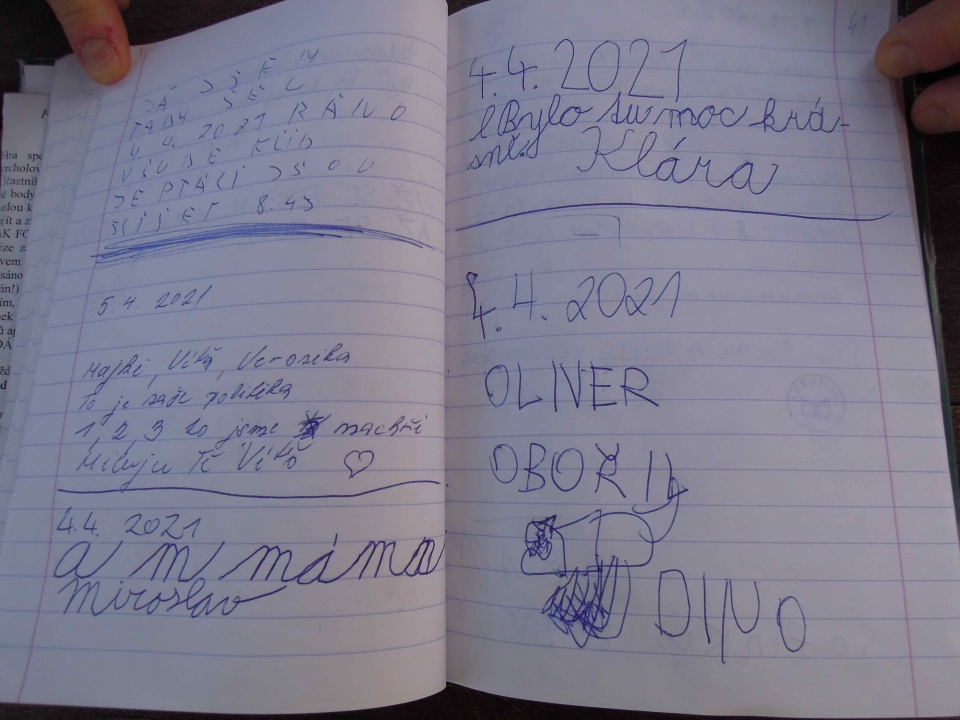 JÁ JSEM
TADY SEL
4. 4. 2021 RÁNO
VŠUDE KLID
JE PTÁCI JSOU
SLIŠET 8:43
5. 4. 2021
Majki, Víťa, Veronika
To je naše politika
1, 2, 3 to jsme machři
Miluju Tě Víťo ♡
4.4. 2021
a m máma
miroslav
41
4. 4. 2021
Bylo tu moc krá-
sně.
Klára
4. 4. 2021
OLIVER
OBOŘIL
DINO